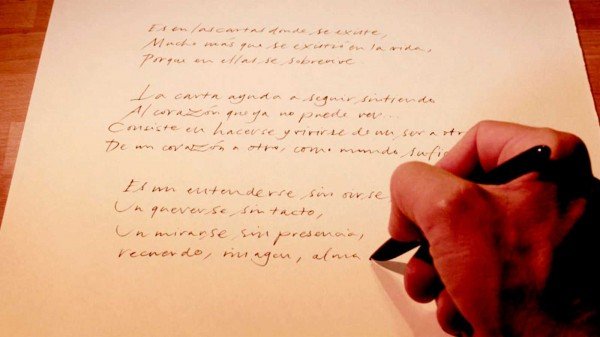 Es en las cartas donde se existe,
Mucho más que se existió en la vida,
Porque en ellas se sobrevive
La carta ayuda a seguir sintiendo
Al corazón que ya no puede ver...
Consiste en hacerse y vivirse de un ser a otr
De un corazón a otro, como mundo sufi
Es un entenderse sin oirse
Un quererse sin tacto,
Un mirarse sin presencia,
recuerdo, imagen, alma